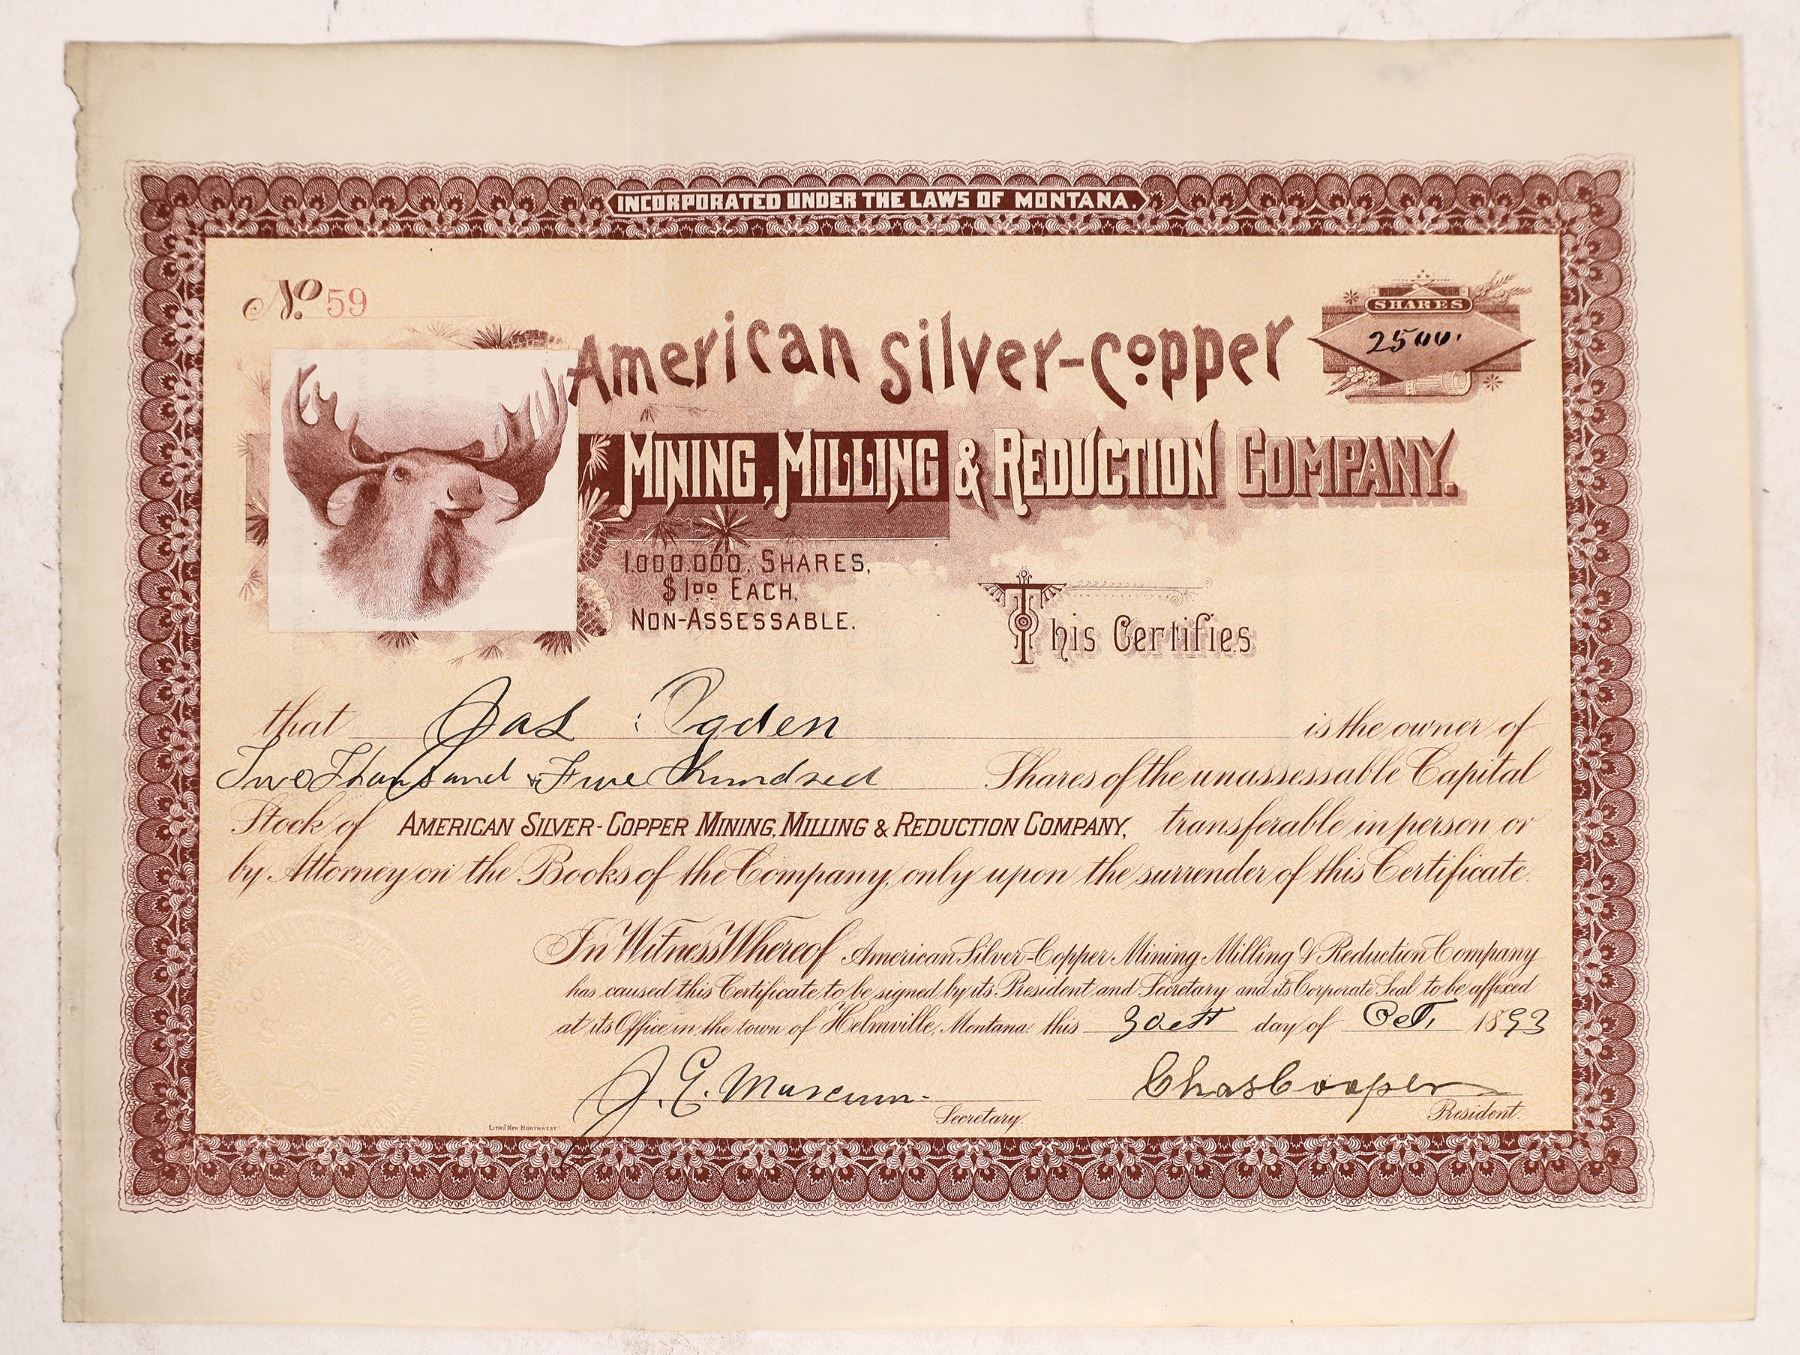 INCORPORATED UNDER THE LAWS OF MONTANA.
No. 59
SHARES
2500.
American Silver-Copper
MINING, MILLING & REDUCTION COMPANY.
1,000,000, SHARES,
$1.00 EACH,
NON-ASSESSABLE.
This Certifies
that Jas Ogden is the owner of
Two Thousand & Five Hundred Shares of the unassessable Capital
Stock of AMERICAN SILVER-COPPER MINING, MILLING & REDUCTION COMPANY, transferable in person or
by Attorney on the Books of the Company, only upon the surrender of this Certificate.
In Witness Whereof American Silver-Copper Mining, Milling & Reduction Company
has caused this Certificate to be signed by its President and Secretary and its Corporate Seal to be affixed
at its Office in the town of Helmville, Montana. this 30th day of Oct. 1893
J. E. Marcum. Chas Cooper
Secretary. President.